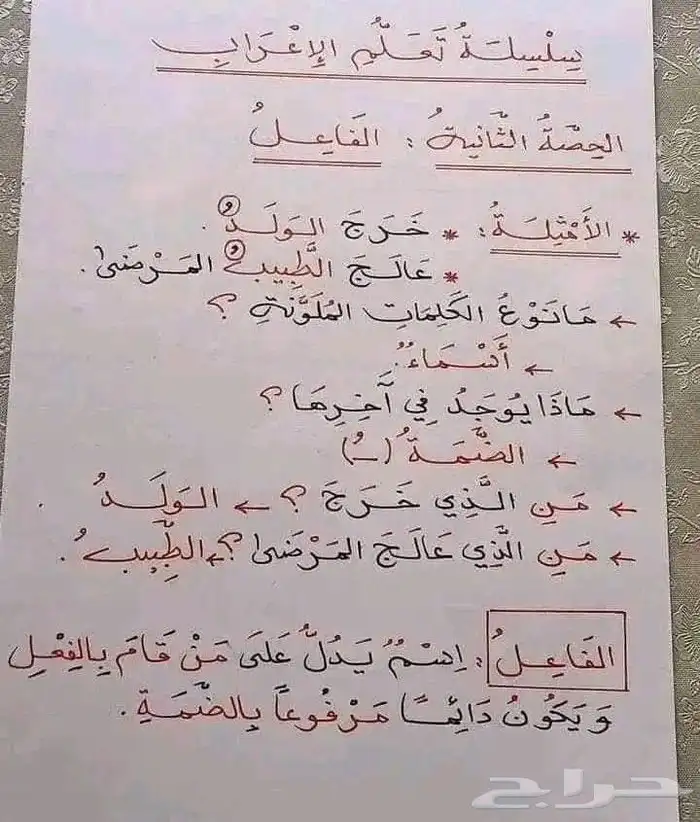 سِلْسِلَةُ تَعَلُّمِ الإِعْرَابِ
الحِصَّةُ الثَّانِيَةُ : الفَاعِلُ
* الأَمْثِلَةُ : * خَرَجَ الوَلَدُ .
* عَالَجَ الطَّبِيبُ المَرْضَى .
← مَا نَوْعُ الكَلِمَاتِ المُلَوَّنَةِ ؟
← أَسْمَاءٌ .
← مَاذَا يُوجَدُ فِي آخِرِهَا ؟
← الضَّمَّةُ (ـُ)
← مَنِ الَّذِي خَرَجَ ؟ ← الوَلَدُ .
← مَنِ الَّذِي عَالَجَ المَرْضَى ؟ ← الطَّبِيبُ .
الفَاعِلُ : اِسْمٌ يَدُلُّ عَلَى مَنْ قَامَ بِالفِعْلِ
وَ يَكُونُ دَائِمًا مَرْفُوعاً بِالضَّمَّةِ .
حراج